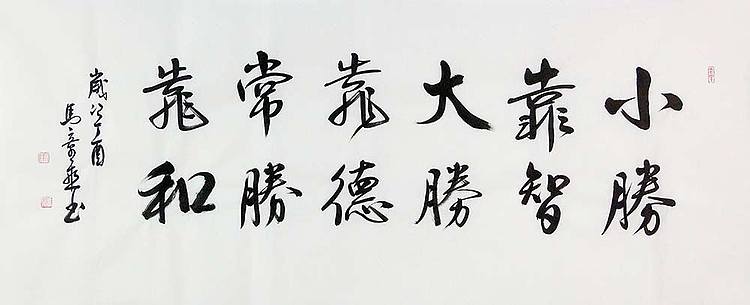 小勝
靠智
大勝
靠德
常勝
靠和
歲次丁酉
馬章乘书